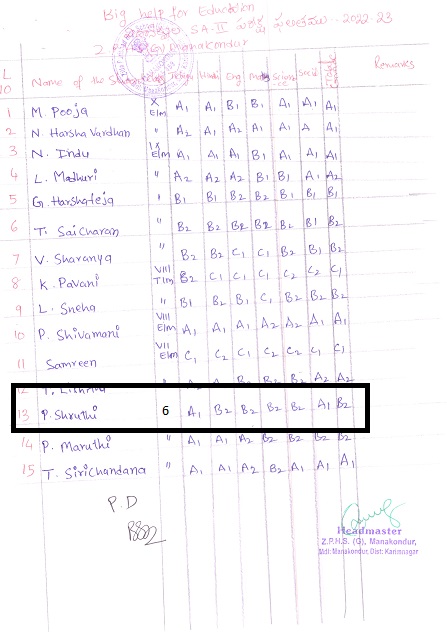 Big help for Education
SA-II పరీక్ష ఫలితములు 2022-23
Z.P.H.S (G) Manakondur
Name of the Student Class Telugu Hindi Eng Maths Science Social Remarks
1 M. Pooja X E/m A1 A1 B1 B1 A1 A1 A1
2 N. Harsha Vardhan " A2 A1 A2 A1 A1 A A1
3 N. Indu IX E/m A1 A1 A1 B1 A1 A1 A1
4 L. Madhuri " A2 A2 A2 B1 B1 A1 A2
5 G. Harshateja " B1 B1 B2 B2 B1 B1 B1
6 T. Saicharan " B2 B2 B2 B2 B2 B1 B2
7 V. Sharanya " B2 B2 C1 C1 B2 B2 B2
8 K. Pavani VIII T/m B2 C1 C1 C1 C2 C2 C1
9 L. Sneha " B1 B2 B1 C1 B2 B2 B2
10 P. Shivamani VIII E/m A1 A1 A1 A2 A2 A1 A1
11 Samreen VII E/m C1 C2 C1 C2 C2 C1 C1
12 B2 A2 A2
13 P. Shruthi 6 A1 B2 B2 B2 B2 A1 B2
14 P. Maruthi " A1 A1 A2 B2 B2 B2 B2
15 T. Sirichandana " A1 A1 A2 B2 A1 A1 A1
P.D
Headmaster
Z.P.H.S. (G), Manakondur,
Mdl: Manakondur, Dist: Karimnagar